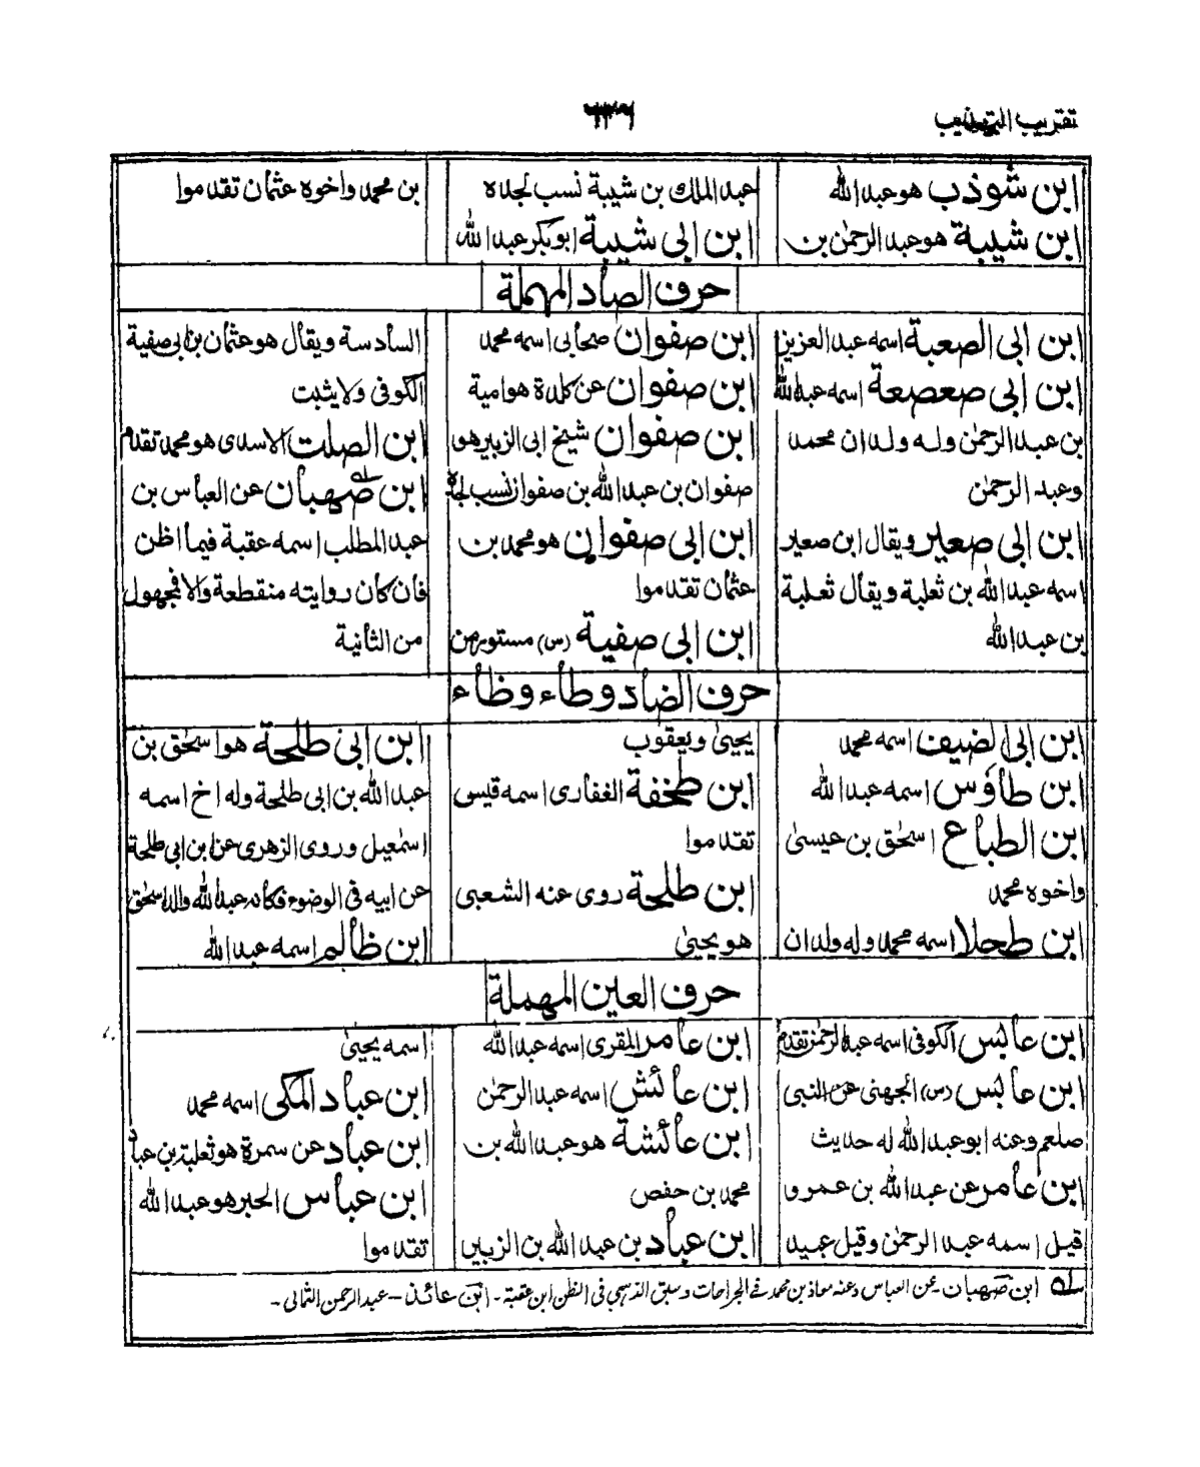 تقريب التهذيب
ابن شوذب هو عبد الله
ابن شيبة هو عبد الرحمٰن بن
عبد الملك بن شيبة نسب لجده
ابن ابى شيبة ابو بكر عبد الله
بن محمد واخوه عثمان تقدموا
حرف الصاد المهملة
ابن ابى الصعبة اسمه عبد العزيز
ابن ابى صعصعة اسمه عبد الله
بن عبد الرحمٰن وله ولدان محمد
وعبد الرحمٰن
ابن ابى صعير ويقال ابن صعير
اسمه عبد الله بن ثعلبة ويقال ثعلبة
بن عبد الله
ابن صفوان صحابى اسمه محمد
ابن صفوان عن كلدة هو امية
ابن صفوان شيخ ابى الزبير هو
صفوان بن عبد الله بن صفوان نسب لجده
ابن ابى صفوان هو محمد بن
عثمان تقدموا
ابن ابى صفية (س) مستور من
السادسة ويقال هو عثمان بن ابى صفية
الكوفى ولا يثبت
ابن الصلت الاسدى هو محمد تقدم
ابن صهبان عن العباس بن
عبد المطلب اسمه عقبة فيما اظن
فان كان روايته منقطعة والا فمجهول
من الثانية
حرف الضاد وطاء وظاء
ابن ابى الضيف اسمه محمد
ابن طاؤس اسمه عبد الله
ابن الطباع اسحٰق بن عيسىٰ
واخوه محمد
ابن طحلا اسمه محمد وله ولدان
يحيىٰ ويعقوب
ابن طخفة الغفارى اسمه قيس
تقدموا
ابن طلحة روى عنه الشعبى
هو يحيىٰ
ابن ابى طلحة هو اسحٰق بن
عبد الله بن ابى طلحة وله اخ اسمه
اسمٰعيل وروى الزهرى عن ابن ابى طلحة
عن ابيه فى الوضوء فكانه عبد الله والد اسحٰق
ابن ظالم اسمه عبد الله
حرف العين المهملة
ابن عابس الكوفى اسمه عبد الرحمٰن تقدم
ابن عابس (س) الجهنى عن النبى
صلعم وعنه ابو عبد الله له حديث
ابن عامر عن عبد الله بن عمرو
قيل اسمه عبد الرحمٰن وقيل عبيد
ابن عامر المقرى اسمه عبد الله
ابن عائش اسمه عبد الرحمٰن
ابن عائشة هو عبد الله بن
محمد بن حفص
ابن عباد بن عبد الله بن الزبير
اسمه يحيىٰ
ابن عباد المكى اسمه محمد
ابن عباد عن سمرة هو ثعلبة بن عباد
ابن عباس الحبر هو عبد الله
تقدموا
له ابن صهبان - عن العباس وعنه معاذ بن محمد فى الجراحات وسبق الذهبى فى الظن ابن عقبة - ابن عائذ - عبد الرحمن الثمالى -